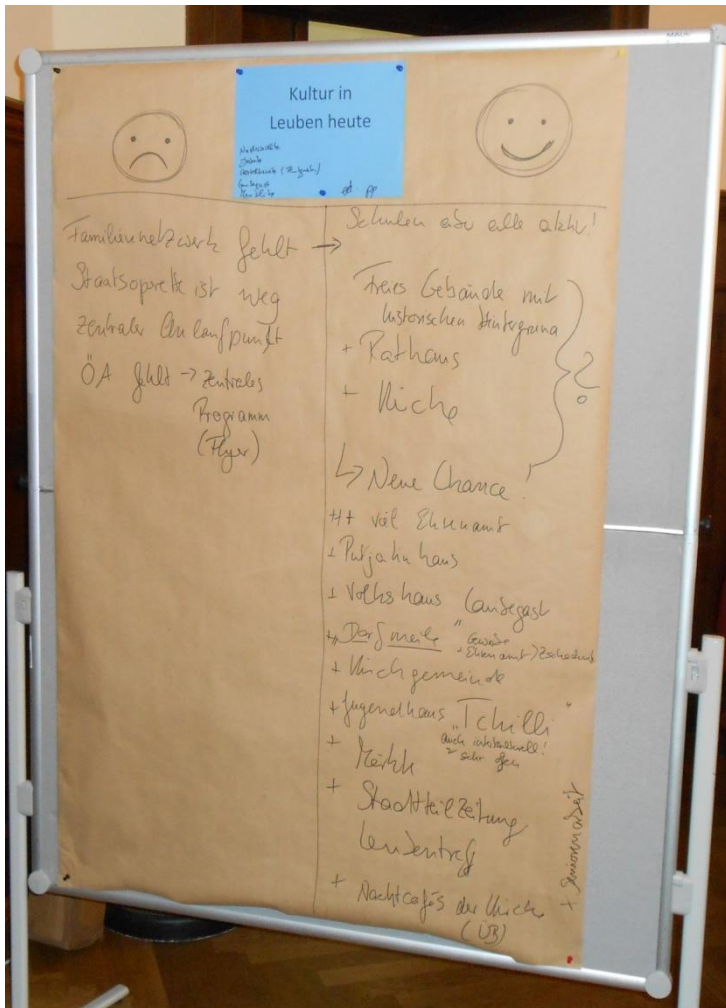 Kultur in
Leuben heute
Familiennetzwerk fehlt →
Staatsoperette ist weg
Zentraler Anlaufpunkt
ÖA fehlt → Zentrales
Programm
(Flyer)
Schulen aber alle aktiv!
Freies Gebäude mit
historischen Hintergrund
+ Rathaus
+ Kirche
?
↳ Neue Chance!
++ viel Ehrenamt
+ Putjatinhaus
+ Volkshaus Laubegast
+ "Dorfmeile" Gewerbe
Ehrenamt
+ Kirchgemeinde
+ Jugendhaus "Tchilli"
auch interkulturell!
sehr offen
+ Märkte
+ Stadtteilzeitung
+ Nachtcafés der Kirche
+ Seniorenarbeit